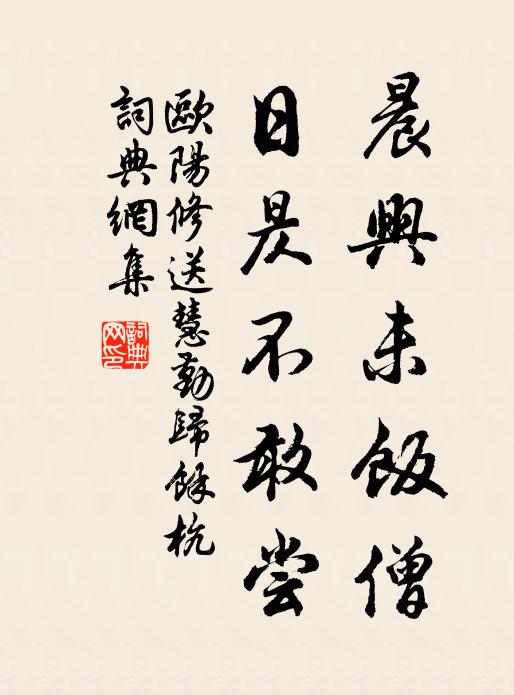 晨興未飯僧
日昃不敢嘗
歐陽修送慧勤歸餘杭
詞典網集
詞典网印